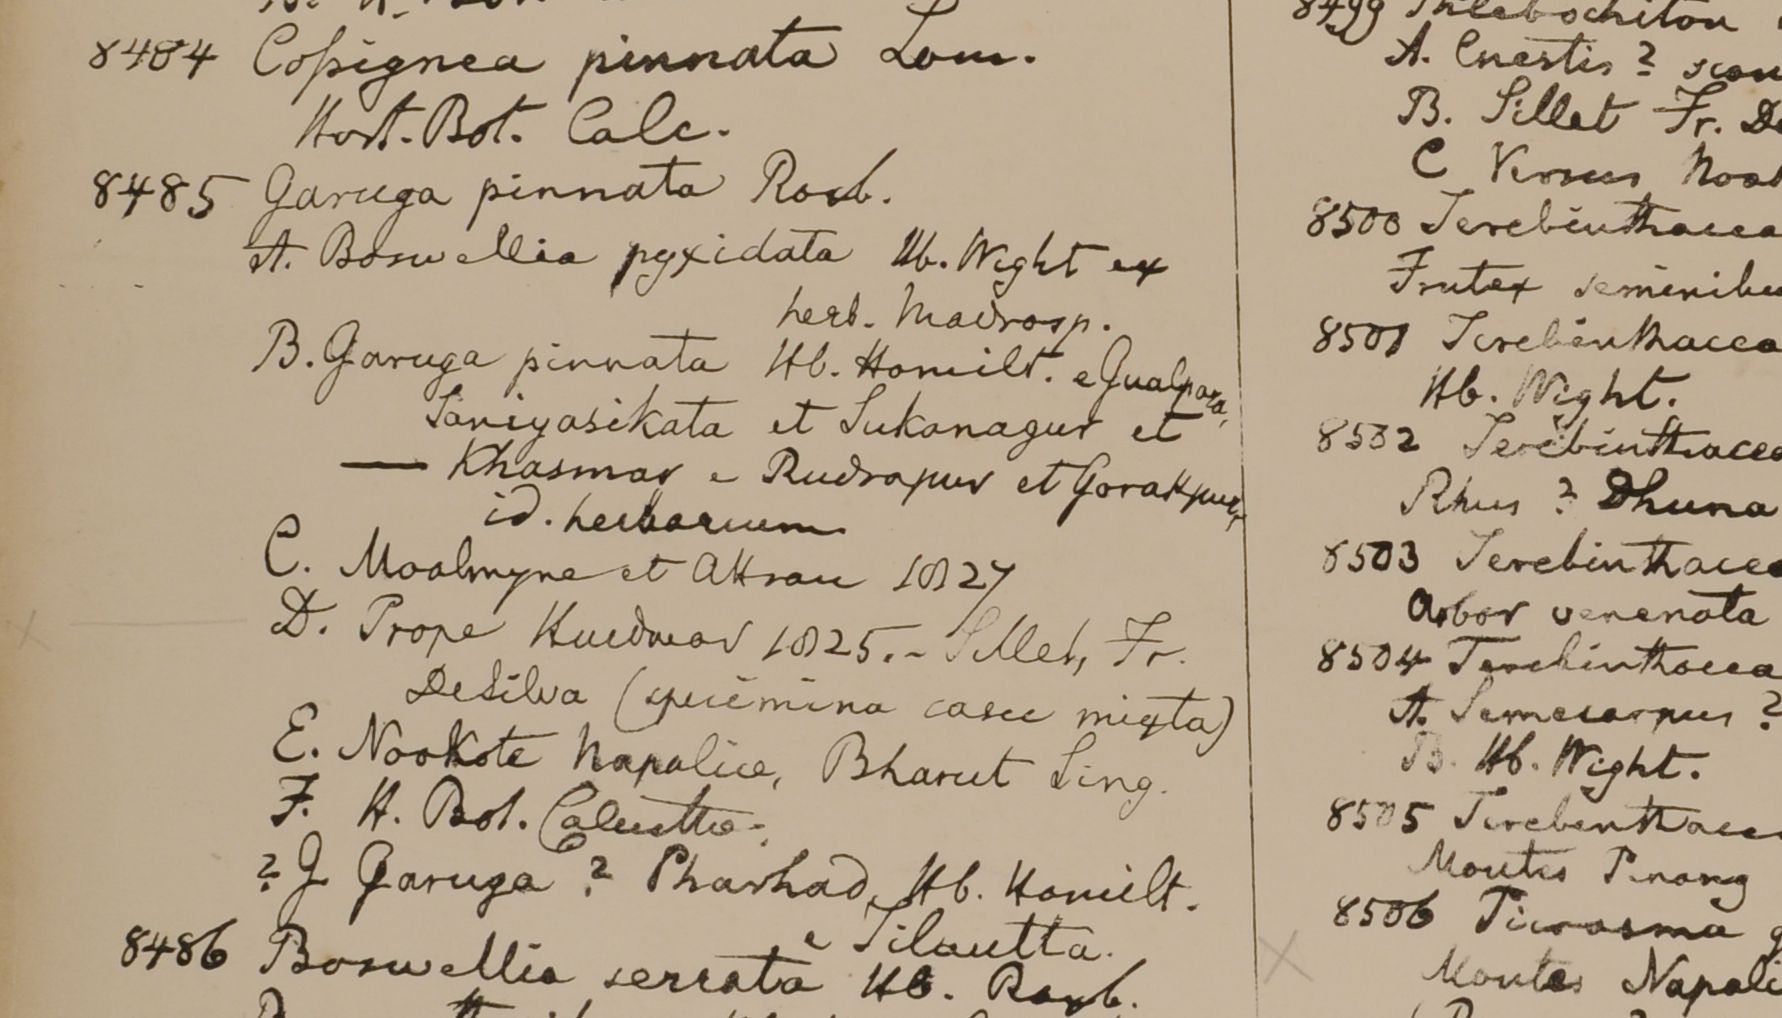 8484 Cossignea pinnata Lom.
Hort. Bot. Calc.
8485 Garuga pinnata Roxb.
A. Boswellia pyxidata Hb. Wight ex
herb. Madrasp.
B. Garuga pinnata Hb. Hamilt. e Gualpara,
Saniyasikata et Sukanagur et
— Khasmar e Rudrapur et Gorakpur,
id. herbarium
C. Moalmyne et Attran 1827
D. Prope Hurdwar 1825. - Sillet, Fr.
DeSilva (specimina casu mixta)
E. Nookote Napaliae, Bharut Sing.
F. H. Bot. Calcutta.
? G Garuga ? Pharhad, Hb. Hamilt.
e Tilautta.
8486 Boswellia serrata Hb. Roxb.
8499 Phlebochiton
A. Cnestis ? scan
B. Sillet Fr. De
C
8500 Terebinthacea
Frutex seminibu
8501 Terebinthacea
Hb. Wight.
8502 Terebinthacea
Rhus ? Dhuna
8503 Terebinthacea
Arbor venenata
8504 Terebinthacea
A. Semecarpus ?
B. Hb. Wight.
8505 Terebinthacea
Montes Pinang
8506 Picrasma
Montes Napali